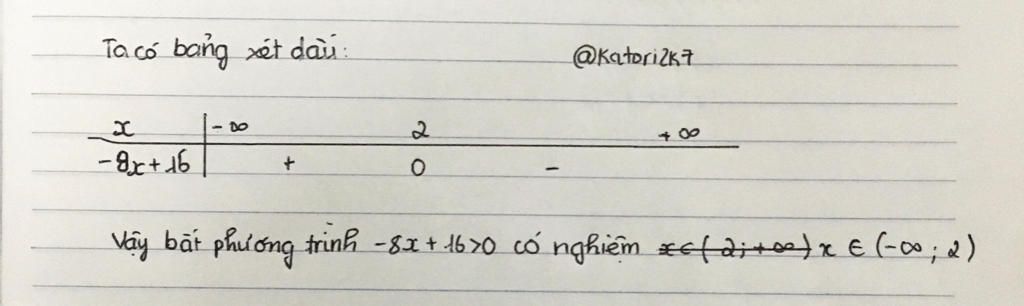 Ta có bảng xét dấu: @Katori2k7
x -∞ 2 +∞
-8x+16 + 0 -
Vậy bất phương trình -8x+16>0 có nghiệm x∈(2;+∞) x ∈ (-∞; 2)